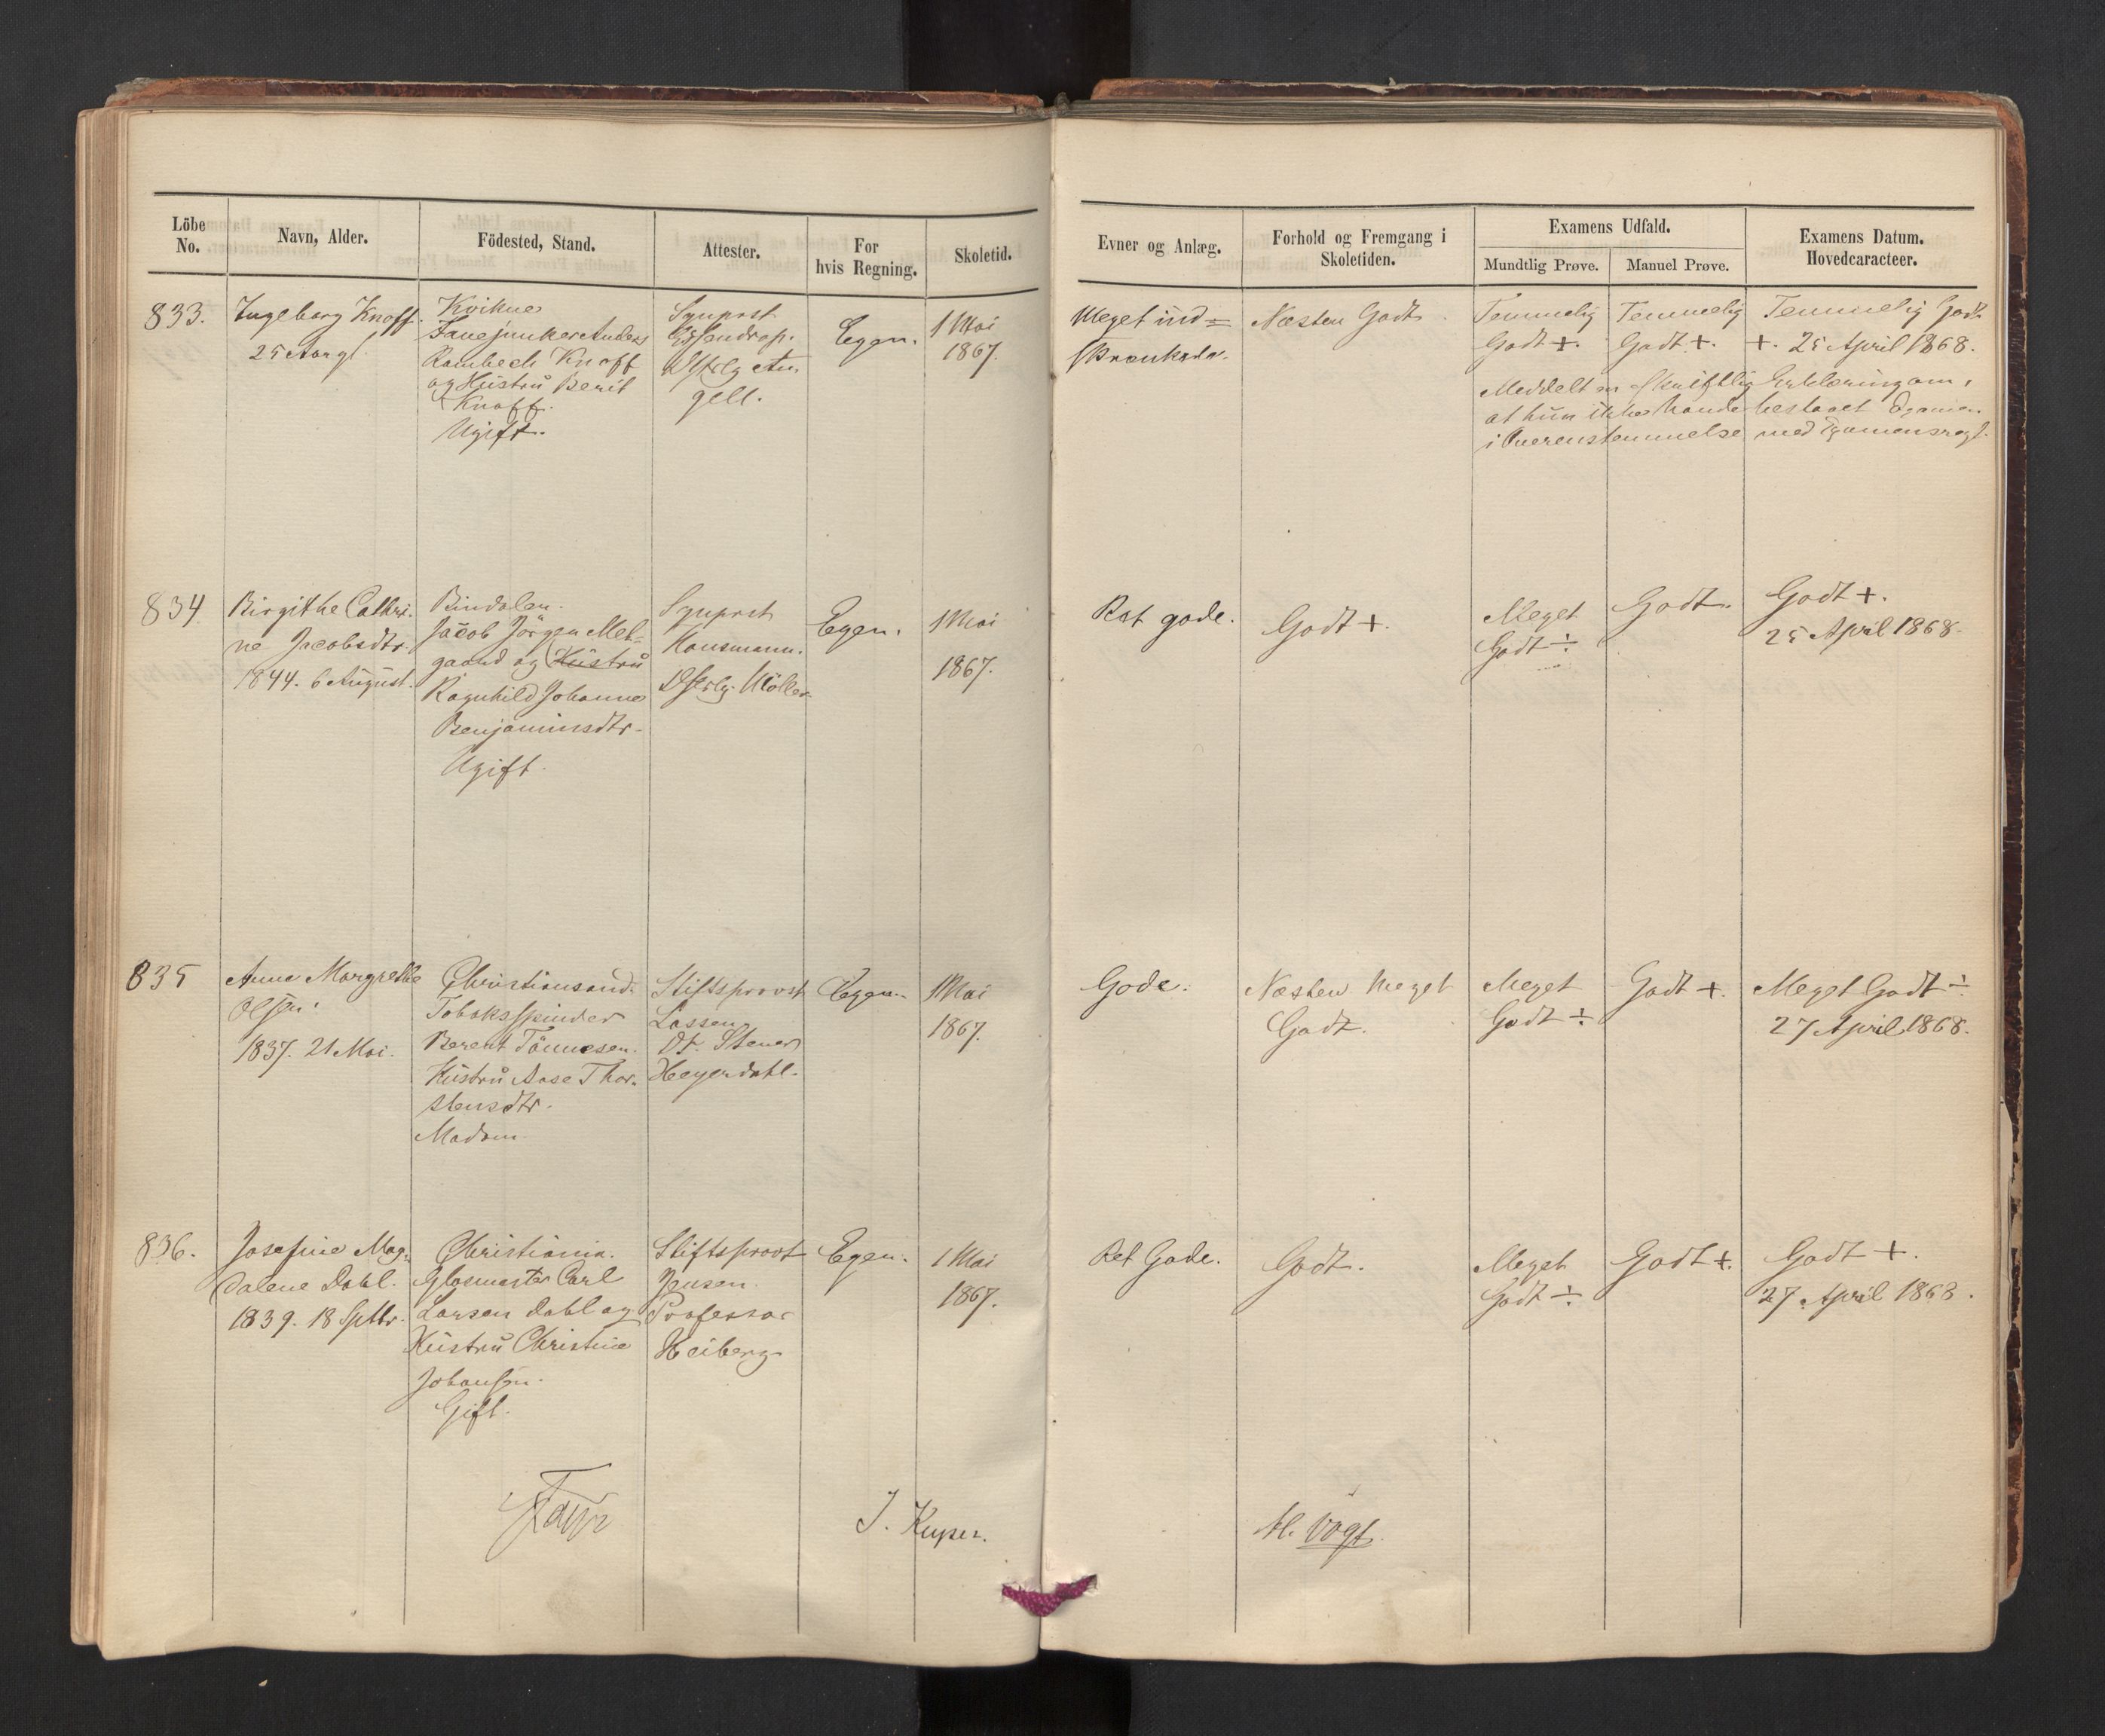 Löbe No.
Navn, Alder.
Födested, Stand.
Attester.
For hvis Regning.
Skoletid.
Evner og Anlæg.
Forhold og Fremgang i Skoletiden.
Examens Udfald.
Mundtlig Prøve.
Manuel Prøve.
Examens Datum. Hovedcaracteer.
833.
Ingeborg Knoff.
25 Aargl.
Kvikne
Fanejunker Anders
Rambech Knoff
og Hustru Berit
Knoff.
Ugift.
Sgnprst
Dstrlg An
gell.
Egen.
1 Mai
1867.
Meget ind=
skrænkede.
Næsten Godt.
Temmelig
Godt +.
Temmelig
Godt +.
Temmelig Godt
+. 25 April 1868.
Meddelt en skriftlig Erklæring om,
at hun ikke havde bestaaet Examen
i Overensstemmelse med Examensregl.
834.
Birgithe Cathri-
ne Jacobsdtr.
1844. 6 August.
Bindalen.
Jacob Jörgen Mel=
gaard og Hustru
Ragnhild Johanne
Benjaminsdtr.
Ugift.
Sgnprst
Hausmann.
Dstrlg. Möller
Egen.
1 Mai
1867.
Ret gode.
Godt +.
Meget
Godt ÷
Godt.
Godt +.
25 April 1868.
835
Anne Margrethe
Olsen.
1837. 21 Mai.
Christiansand.
Tobaksspinder
Berent Tönnesen.
Hustru Aase Thor-
stensdtr.
Madam
Stiftsprovst
Lassen
Dr. Stener
Heyerdahl.
Egen.
1 Mai
1867.
Gode.
Næsten Meget
Godt.
Meget
Godt ÷
Godt +.
Meget Godt ÷
27 April 1868.
836.
Josefine Mag-
dalene Dahl.
1839. 18 Sptbr.
Christiania.
Glasmester Carl
Larsen Dahl og
Hustru Christine
Johansen.
Gift.
Stiftsprovst
Jensen.
Professor
Heiberg
Egen.
1 Mai
1867.
Ret Gode.
Godt.
Meget
Godt ÷.
Godt +.
Godt +.
27 April 1868.
Faye
J. Keyser.
H. Vogt.